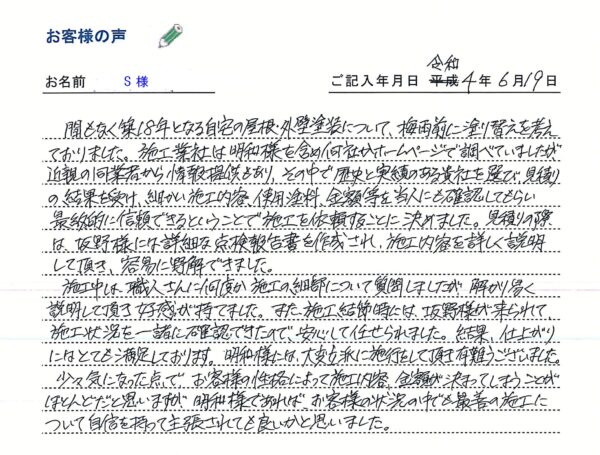 お客様の声
お名前 S 様
令和
ご記入年月日 平成 4 年 6 月 19 日
間もなく築18年となる自宅の屋根・外壁塗装について、梅雨前に塗り替えを考え
ておりました。施工業社は明和様を含め何社かホームページで調べていましたが
近親の同業者から情報提供もあり、その中で歴史と実績のある貴社を選び見積り
の結果を受け、細かい施工内容、使用塗料、金額等を当人にも確認してもらい
最終的に信頼できるということで施工を依頼することに決めました。見積りの際
は、坂野様には詳細な点検報告書を作成され、施工内容を詳しく説明
して頂き、容易に理解できました。
施工中は、職人さんに何度か施工の細部について質問しましたが 解かり易く
説明して頂き好感が持てました。また、施工結節時には、坂野様が来られて
施工状況を一諸に確認できたので、安心して任せられました。結果、仕上がり
にはとても満足しております。明和様には、大変立派に施行をして頂き有難うございました。
少々気になった点で、お客様の性格によって施工内容、金額が決まってしまうことが
ほとんどだと思いますが 明和様であれば、お客様の状況の中でも最善の施工に
ついて自信を持って主張されても良いかと思いました。